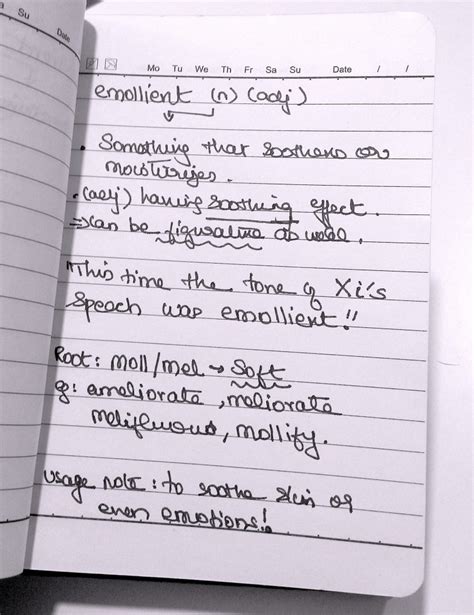 Su
Date
Mo Tu We Th Fr Sa Su Date / /
emollient (n) (adj)
. Something that soothens or
moisturizes.
. (adj) having soothing effect.
⇒ can be figurative as well.
"This time the tone of Xi's
speech was emollient!!
Root: moll/mel → Soft
g: ameliorate, meliorate
melifluous, mollify.
usage note: to soothe skin or
even emotions!